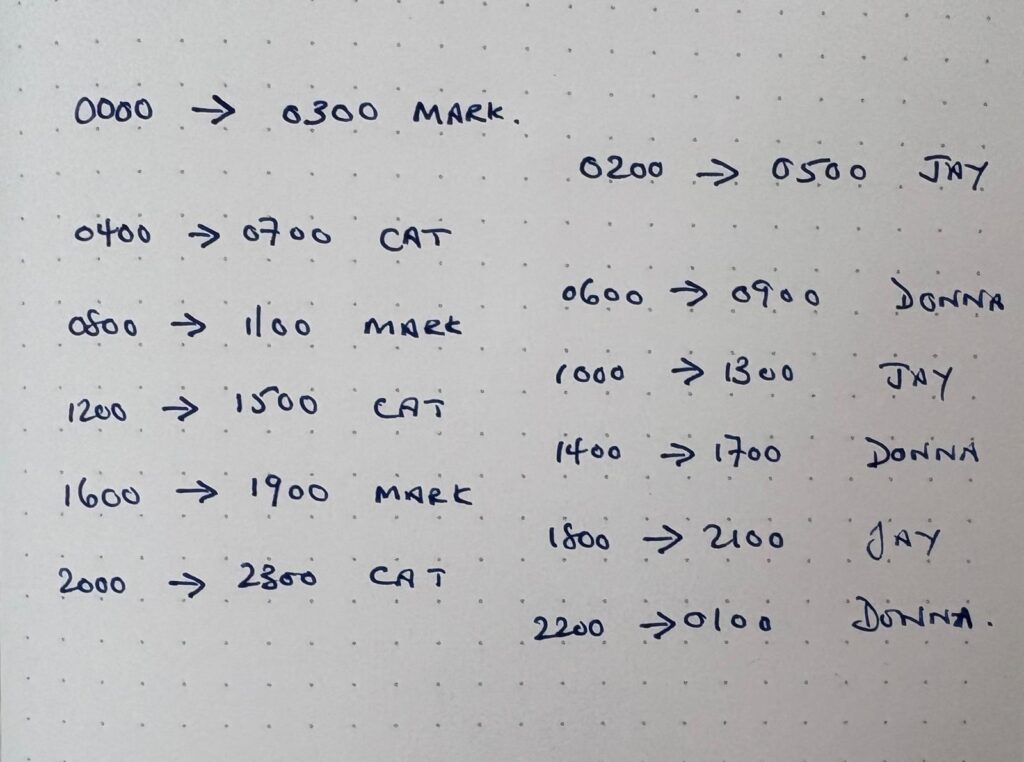 0000 → 0300 MARK.
0200 → 0500 JAY
0400 → 0700 CAT
0600 → 0900 DONNA
0800 → 1100 MARK
1000 → 1300 JAY
1200 → 1500 CAT
1400 → 1700 DONNA
1600 → 1900 MARK
1800 → 2100 JAY
2000 → 2300 CAT
2200 → 0100 DONNA.